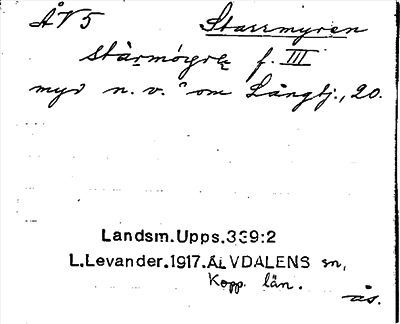 ÅV5 Starrmyren
stàrmógrę f. III
myr n. v. om Långtj., 20.
Landsm.Upps.339:2
L.Levander.1917.ÄLVDALENS sn,
Kopp. län.
ås.